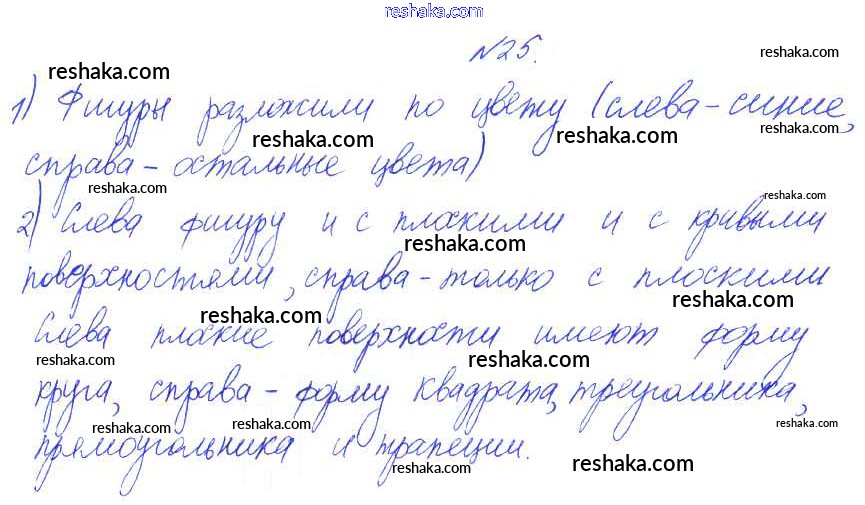 reshaka.com
№25.
reshaka.com
reshaka.com
1) Фигуры разложили по цвету (слева - синие,
reshaka.com
reshaka.com
reshaka.com
справа - остальные цвета)
reshaka.com
reshaka.com
2) Слева фигуру и с плоскими и с кривыми
reshaka.com
поверхностями, справа - только с плоскими
reshaka.com
reshaka.com
Слева плоские поверхности имеют форму
reshaka.com
reshaka.com
круга, справа - форму квадрата, треугольника,
reshaka.com
reshaka.com
reshaka.com
прямоугольника и трапеции.
reshaka.com
reshaka.com